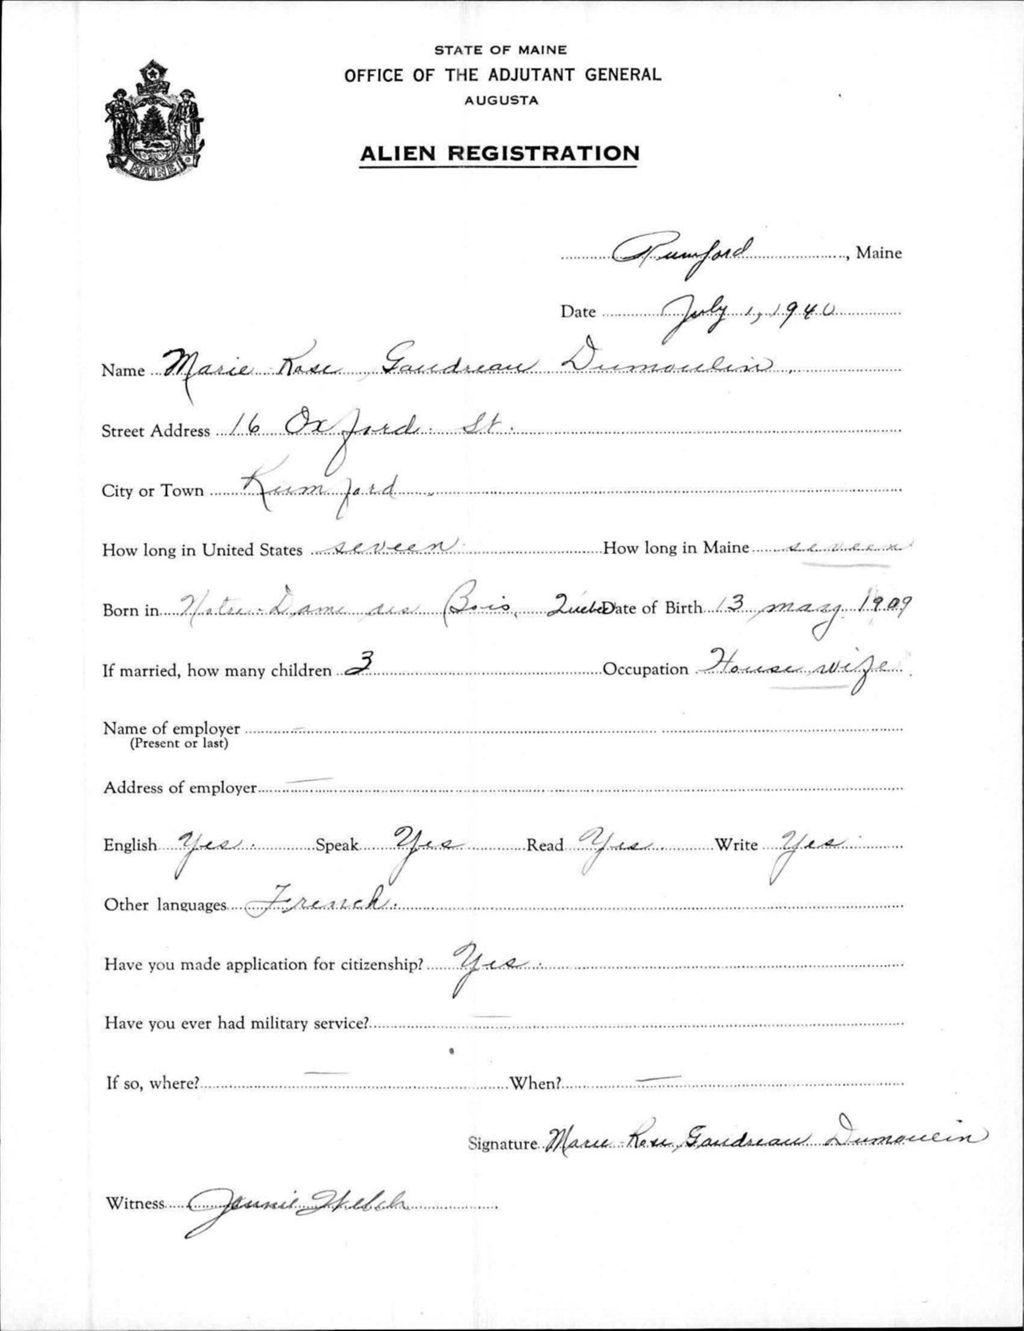 STATE OF MAINE
OFFICE OF THE ADJUTANT GENERAL
AUGUSTA
ALIEN REGISTRATION
MAINE
Rumford, Maine
Date July 1, 1940
Name Marie Rose Gaudreau Dumoulin
Street Address 16 Oxford St.
City or Town Rumford
How long in United States seveen How long in Maine seveen
Born in Notre-Dame des Bois, Quebec Date of Birth 13 may 1909
If married, how many children 3 Occupation House wife
Name of employer —
(Present or last)
Address of employer —
English Yes. Speak Yes Read Yes. Write Yes
Other languages French.
Have you made application for citizenship? Yes.
Have you ever had military service? —
If so, where? — When? —
Signature Marie-Rose Gaudreau Dumoulin
Witness Jennie Welch